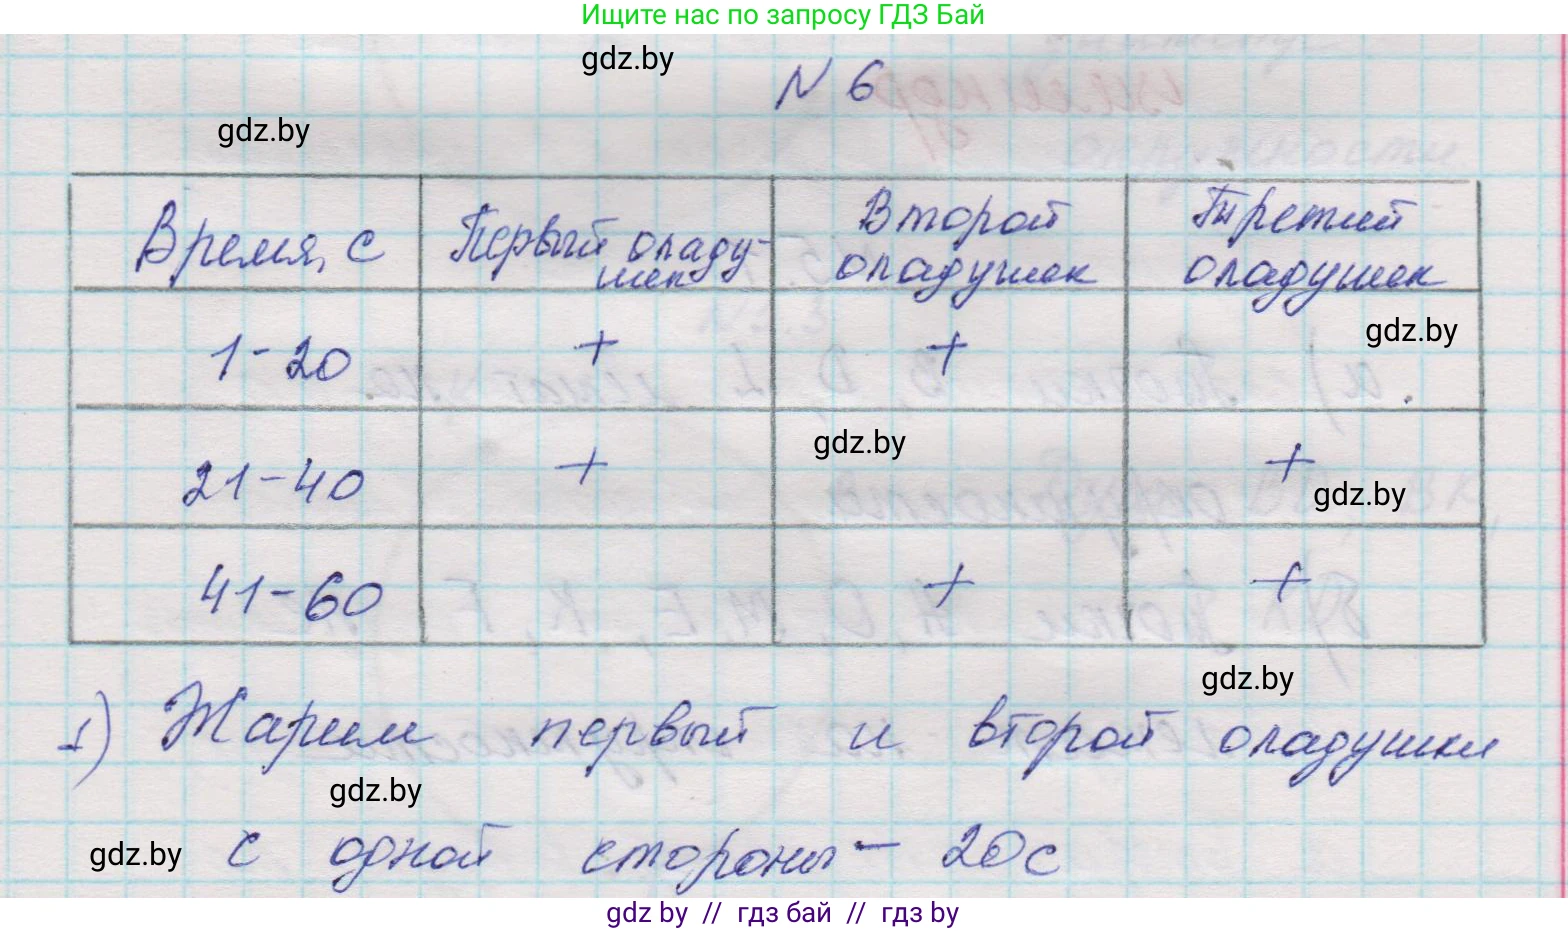 Ищите нас по запросу ГДЗ Бай
gdz.by
N 6
gdz.by
Время, с Первый оладу- Второй Третий
шек оладушек оладушек
gdz.by
1-20 + +
gdz.by
21-40 + +
gdz.by
41-60 + +
gdz.by
1) Жарим первый и второй оладушки
gdz.by
gdz.by с одной стороны - 20с
gdz by // гдз бай // гдз by